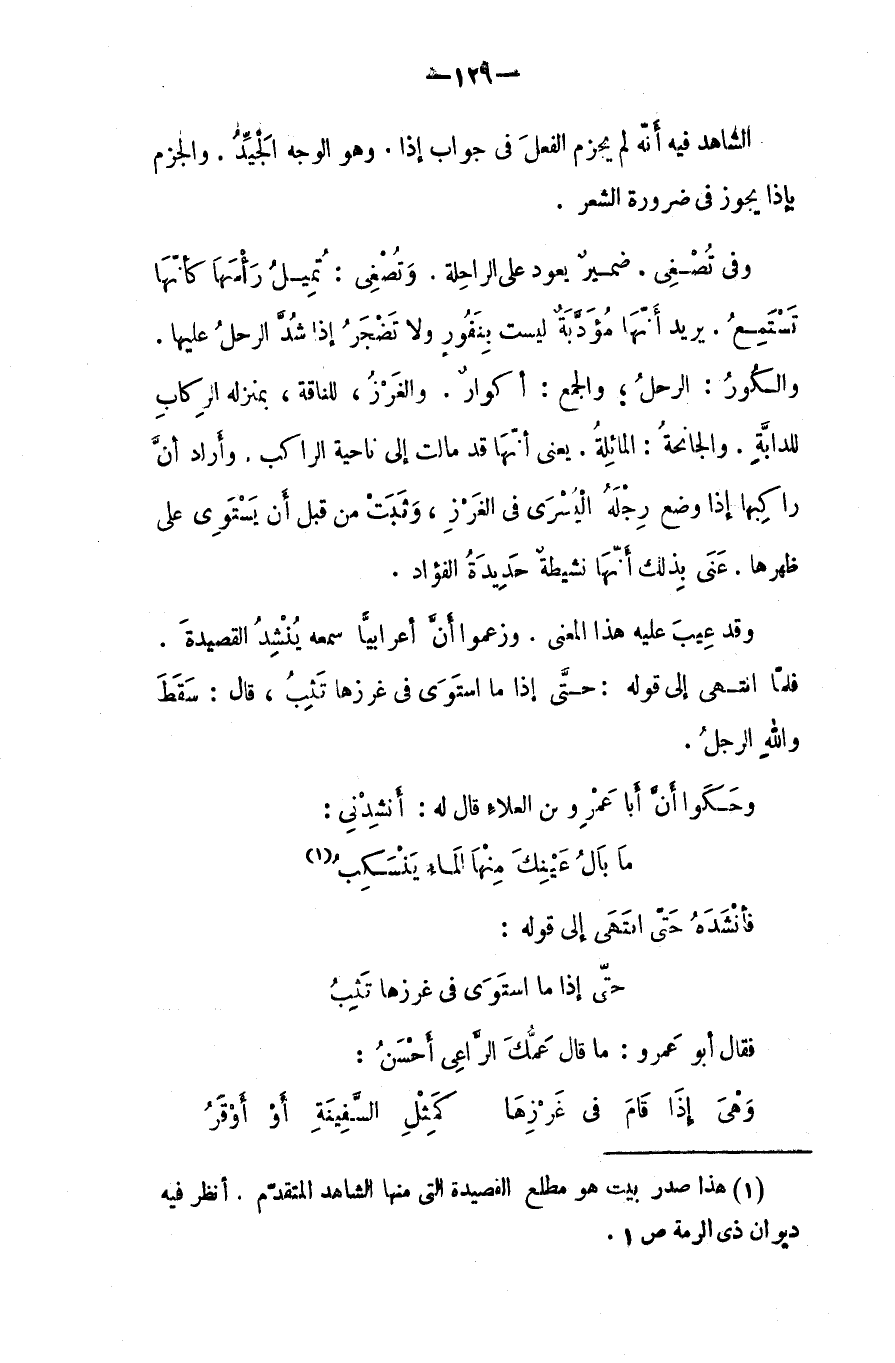 — ١٢٩ —
الشاهد فيه أَنّه لم يجزم الفعلَ فى جواب إذا . وهو الوجه الْجَيِّدُ . والجزم
بإذا يجوز فى ضرورة الشعر .
وفى تُصْغِى . ضميرٌ يعود على الراحلة . وَتُصْغِى : تُمِيلُ رَأْسَهَا كأَنَّهَا
تَسْتَمِعُ . يريد أَنَّهَا مُؤَدَّبَةٌ ليست بِنَفُورٍ ولا تَضْجَرُ إذا شُدَّ الرحلُ عليها .
والكُورُ : الرحلُ ؛ والجمع : أكوارٌ . والغَرْزُ ، للناقة ، بمنزله الركابِ
للدابَّةِ . والجانحةُ : المائِلةُ . يعنى أنَّهَا قد مالت إلى ناحية الراكب . وأَراد أنَّ
راكِبها إذا وضع رِجْلَهُ الْيُسْرَى فى الغَرْزِ ، وَثَبَتْ من قبل أَن يَسْتَوِى على
ظهرها . عَنَى بِذلك أَنَّهَا نشيطةٌ حَدِيدَةُ الفؤاد .
وقد عِيبَ عليه هذا المعنى . وزعموا أنَّ أعرابيًّا سمعه يُنْشِدُ القصيدةَ .
فلمّا انتهى إلى قوله : حتَّى إذا ما استَوَى فى غرزها تَثِبُ ، قال : سَقَطَ
واللهِ الرجلُ .
وحَكَوا أنَّ أَبا عَمْرِو بن العلاءِ قال له : أَنشِدْنِى :
مَا بَالُ عَيْنِكَ مِنْهَا الْمَاءِ يَنْسَكِبُ(١)
فأنْشَدَهُ حَتَّى انتَهَى إلى قوله :
حتَّى إذا ما استَوَى فى غرزها تَثِبُ
فقال أبو عَمرو : ما قال عَمُّكَ الرَّاعِى أَحْسَنُ :
وَهْىَ إِذَا قَامَ فى غَرْزِهَا كَمِثْلِ السَّفِينَةِ أَوْ أَوْقَرُ
(١) هذا صدر بيت هو مطلع القصيدة التى منها الشاهد المتقدّم . أنظر فيه
ديوان ذى الرمة ص ١ .